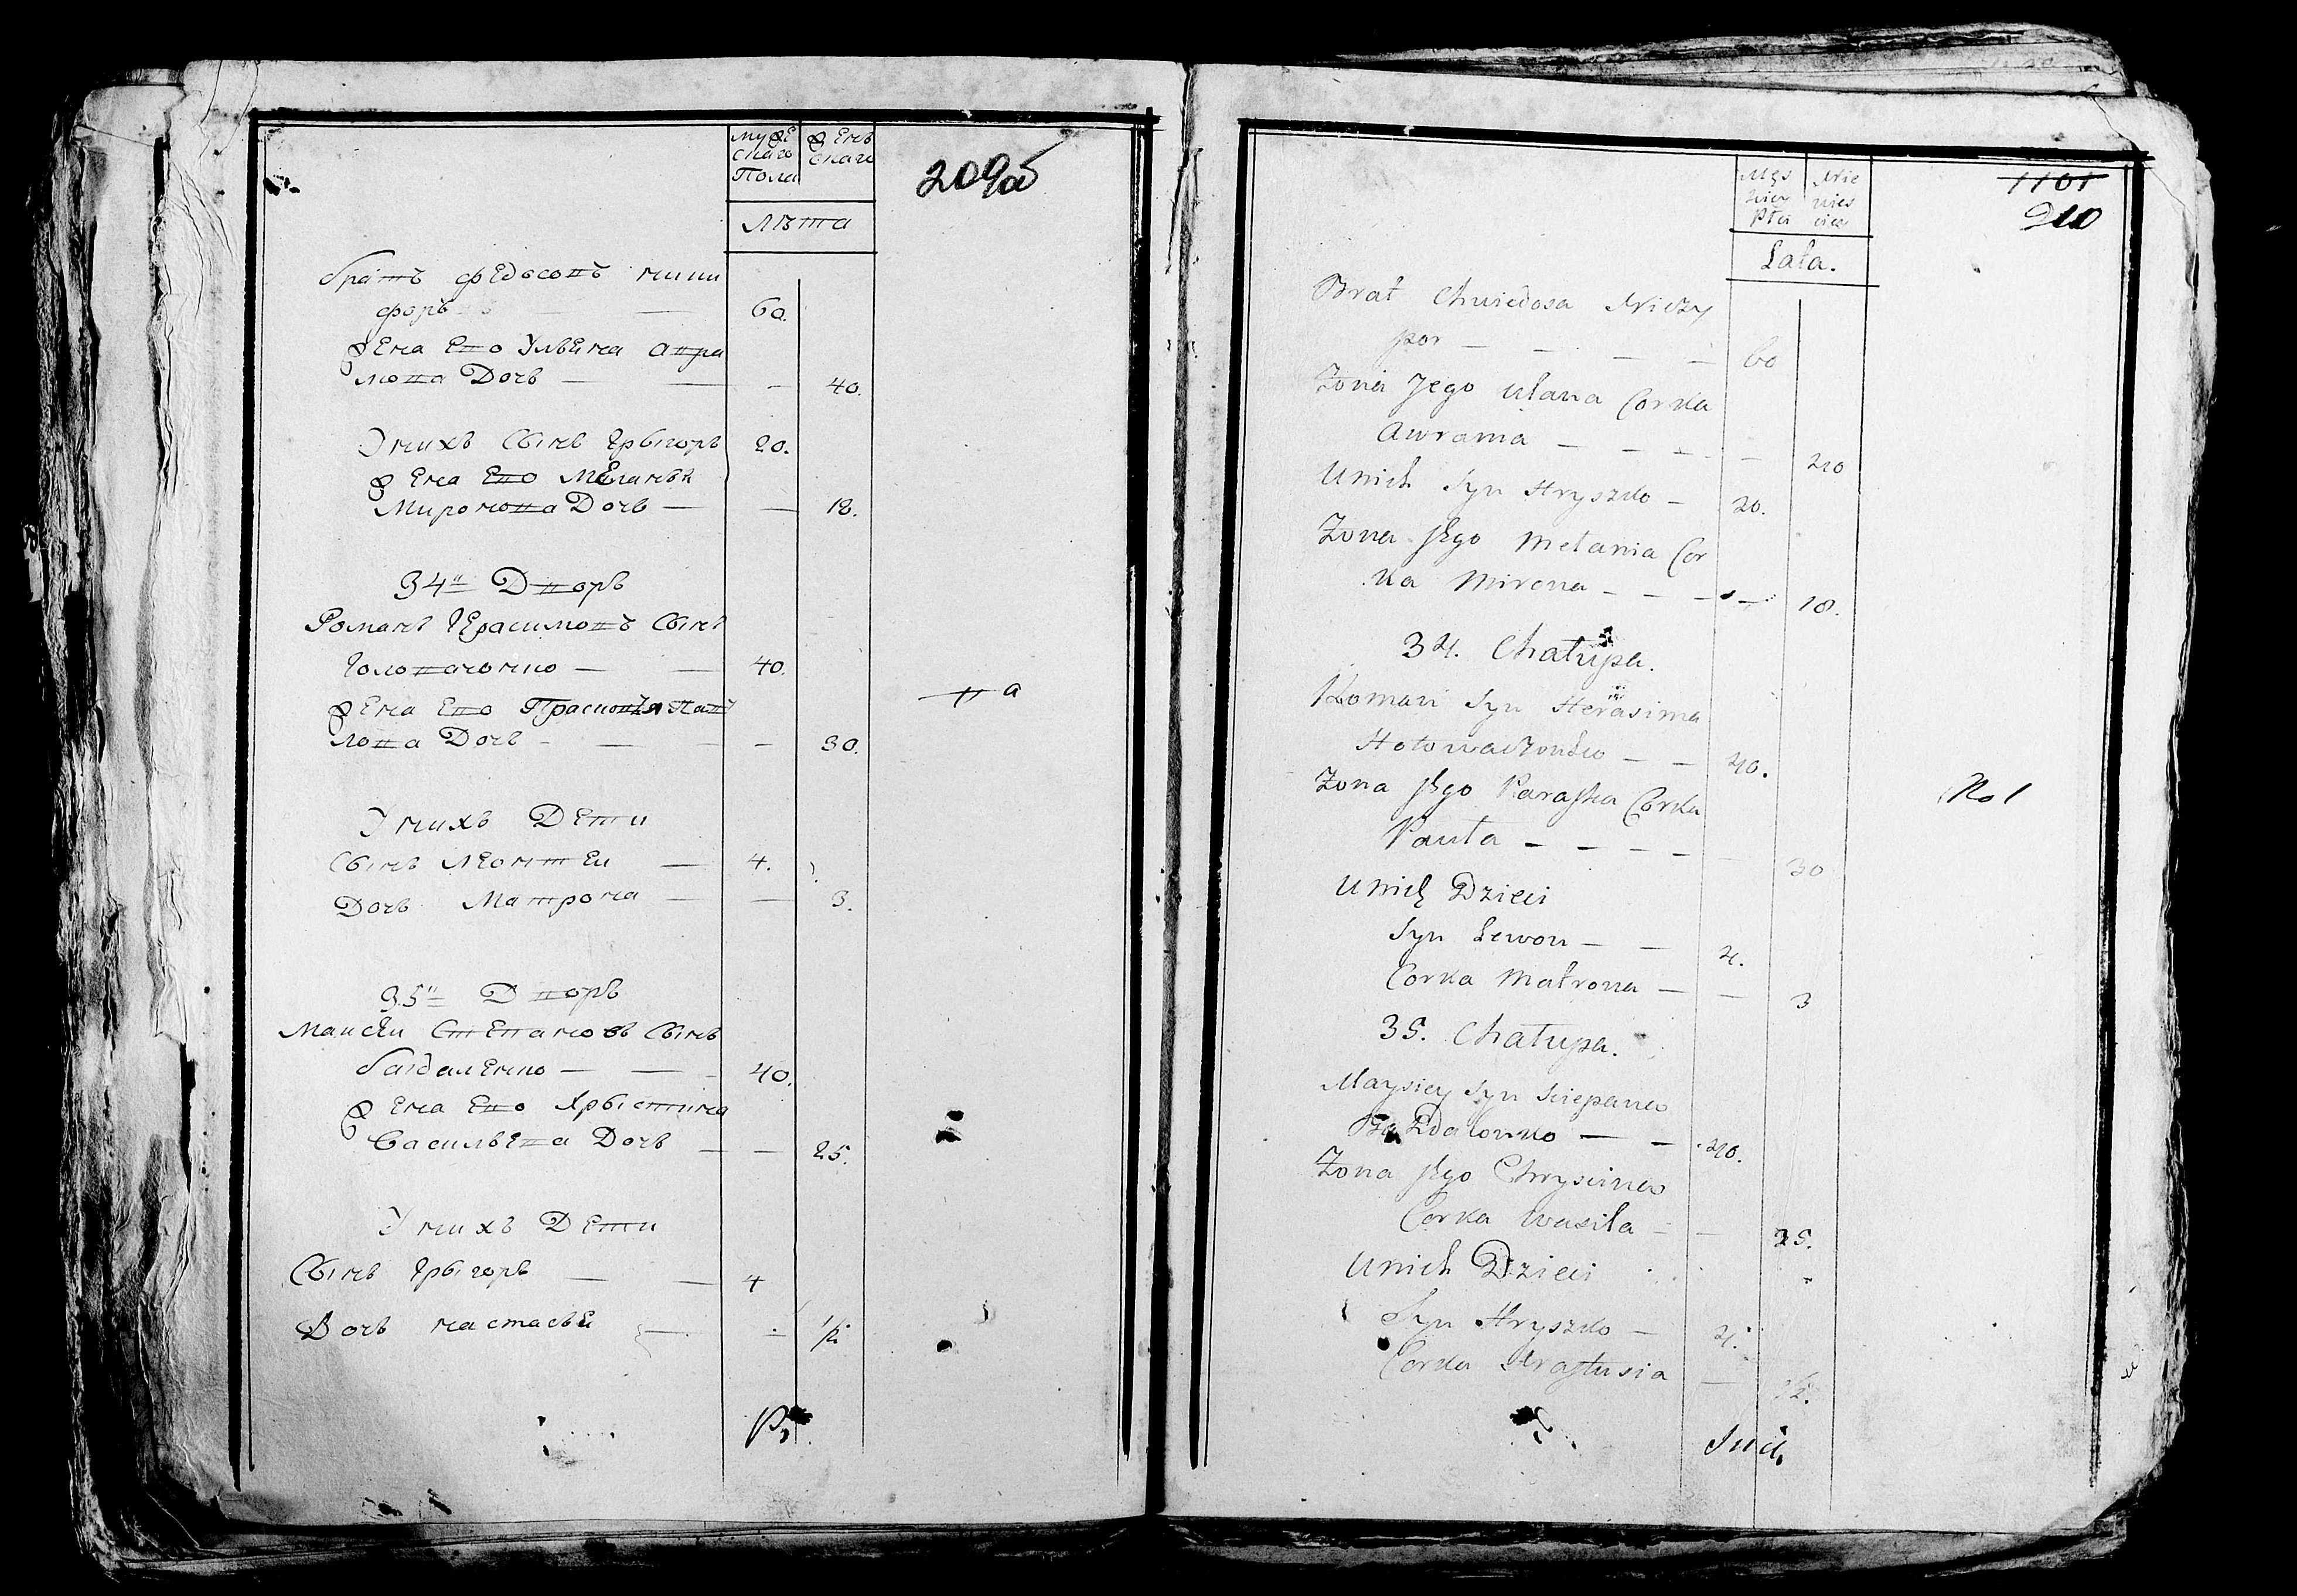 Мужескаго Пола
Женскаго
209об
Лѣта
братъ Федосовъ ничи
форъ — — 60.
Жена Его Ульяна Авра
мова Дочь — — — 40.
Унихъ Сынъ Грыгоръ 20.
Жена Его Меланья
Миронова Дочь — — 18.
34й Дворъ
Романъ Герасимовъ Сынъ
Головаченко — — 40.
Жена Его Прасковья Пав
лова Дочь — — — — 30.
Унихъ Дети
Сынъ Леонтеи — 4.
Дочь Матрона — — 3.
35й Дворъ
Маисеи Степановъ Сынъ
баздаленко — — 40.
Жена Его Хрыстина
Васильева Дочь — — 25.
Унихъ Дети
Сынъ Грыгоръ — — 4
Дочь настасья — — 1/2
Męs
kiey
Płci
Nie
wies
ciey
1101
210
Lata.
Brat Chwiedosa Niczy
por — — — — 60
Żona Jego Ulana Corka
Awrama — — — — — 40
Unich Syn Hryszko — 20.
Żona Jego Melania Cor
ka Mirona — — — — 18.
34. Chałupa.
Roman Syn Herasima
Hołowaczonko — — 40.
Żona Jego Paraska Corka
Pauła — — — — — 30
Unich Dzieci
Syn Lewon — — 4.
Corka Matrona — — 3
35. Chałupa.
Maysiey Syn Sciepana
Bazdalonko — — 40.
Żona Jego Chryscina
Corka Wasila — — 25.
Unich Dzieci
Syn Hryszko — 4.
Corka Nastusia — 1/2.